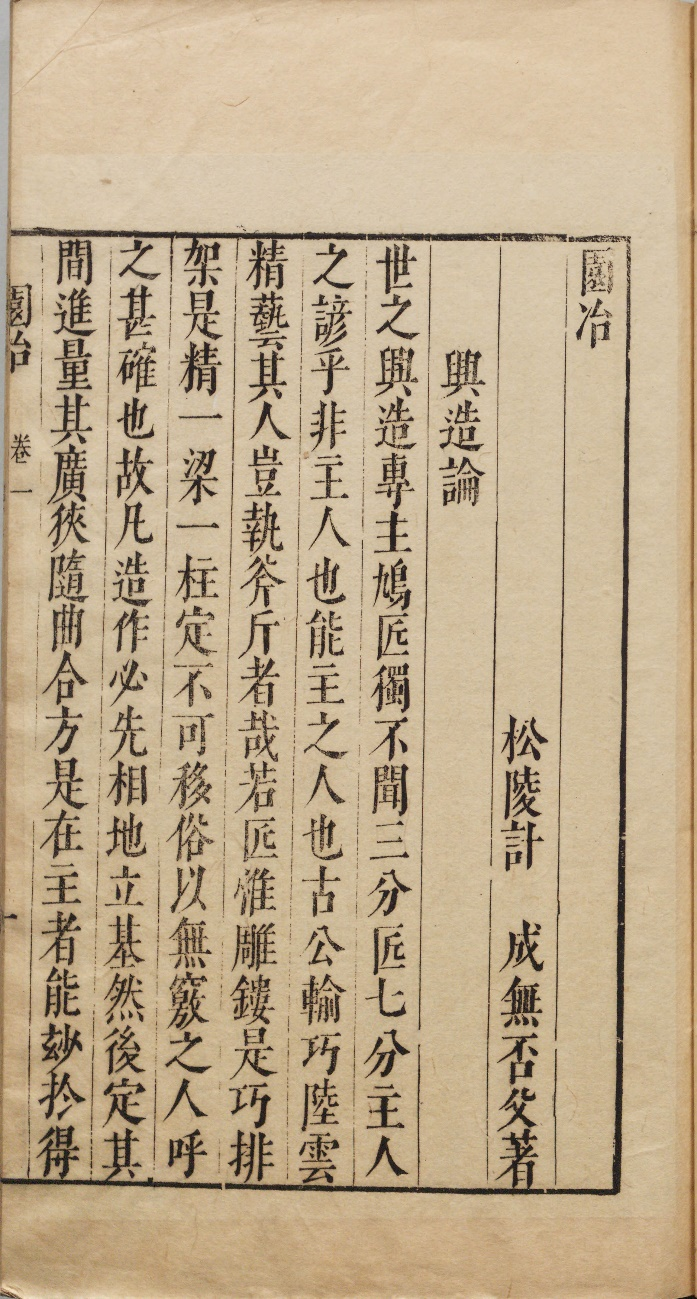 園冶
松陵計　成無否父著
興造論
世之興造專主鳩匠獨不聞三分匠七分主人
之諺乎非主人也能主之人也古公輸巧陸雲
精藝其人豈執斧斤者哉若匠惟雕鏤是巧排
架是精一梁一柱定不可移俗以無竅之人呼
之甚確也故凡造作必先相地立基然後定其
間進量其廣狹隨曲合方是在主者能玅扵得
園冶　卷一　一